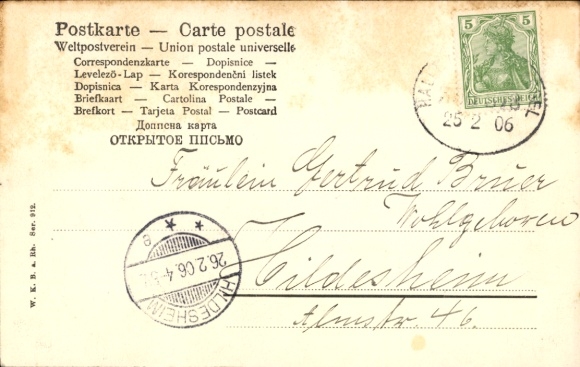 Postkarte — Carte postale
Weltpostverein — Union postale universelle
Correspondenzkarte — Dopisnice —
Levelező-Lap — Korespondenční listek
Dopisnica — Karta Korespondenzyjna
Briefkaart — Cartolina Postale —
Brefkort — Tarjeta Postal — Postcard
Дописна карта
ОТКРЫТОЕ ПИСЬМО
5 5
DEUTSCHES REICH
25 2 06
Fräulein Gertrud Brüer
Wohlgeboren
Hildesheim
Almstr. 46.
HILDESHEIM
26.2.06.4-5
* * e
W. K. B. a. Rh. Ser. 912.